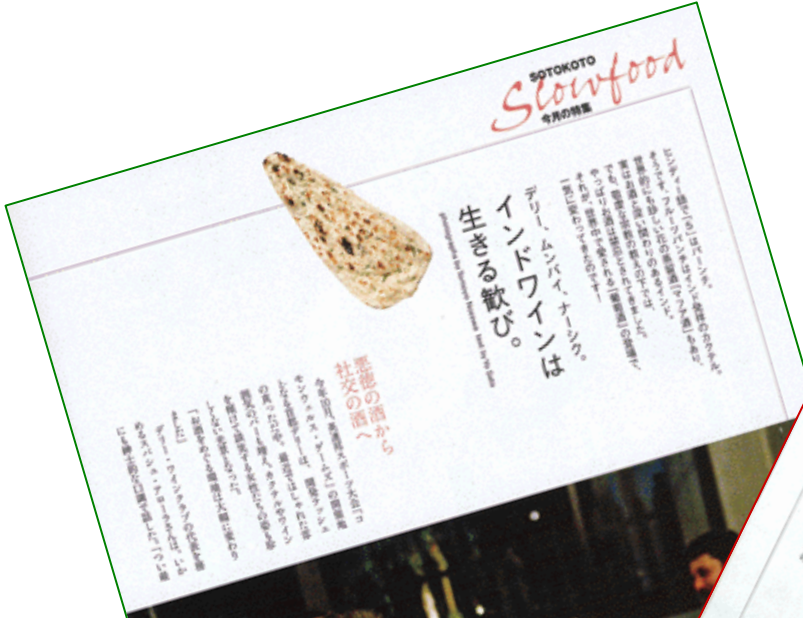 SOTOKOTO
Slowfood
今月の特集
ヒンディー語で「5」はパーンチ。
そうです、フルーツパンチはインド発祥のカクテル。
世界的にも珍しい花の蒸留酒「マフア酒」もあり、
実はお酒と深い関わりのあるインド。
でも、厳格な宗教の教えの下では、
やっぱりお酒は禁忌とされてきました。
それが、世界中で愛される「葡萄酒」の登場で、
一気に変わってきたのです！
デリー、ムンバイ、ナーシク。
インドワインは
生きる歓び。
悪徳の酒から
社交の酒へ
今年10月、英連邦スポーツ大会「コ
モンウェルス・ゲームズ」の開催地
となる首都デリーは、開発ラッシュ
の真っただ中。最近ではしゃれた雰
囲気のバーも増え、カクテルやワイン
を傾けて談笑する女性たちの姿も珍
しくない光景となった。
「お酒をめぐる環境は大幅に変わり
ました」
デリー・ワインクラブの代表を務
めるスバシュ・アローラさんは、いか
にも紳士的な口調で話した。「つい最